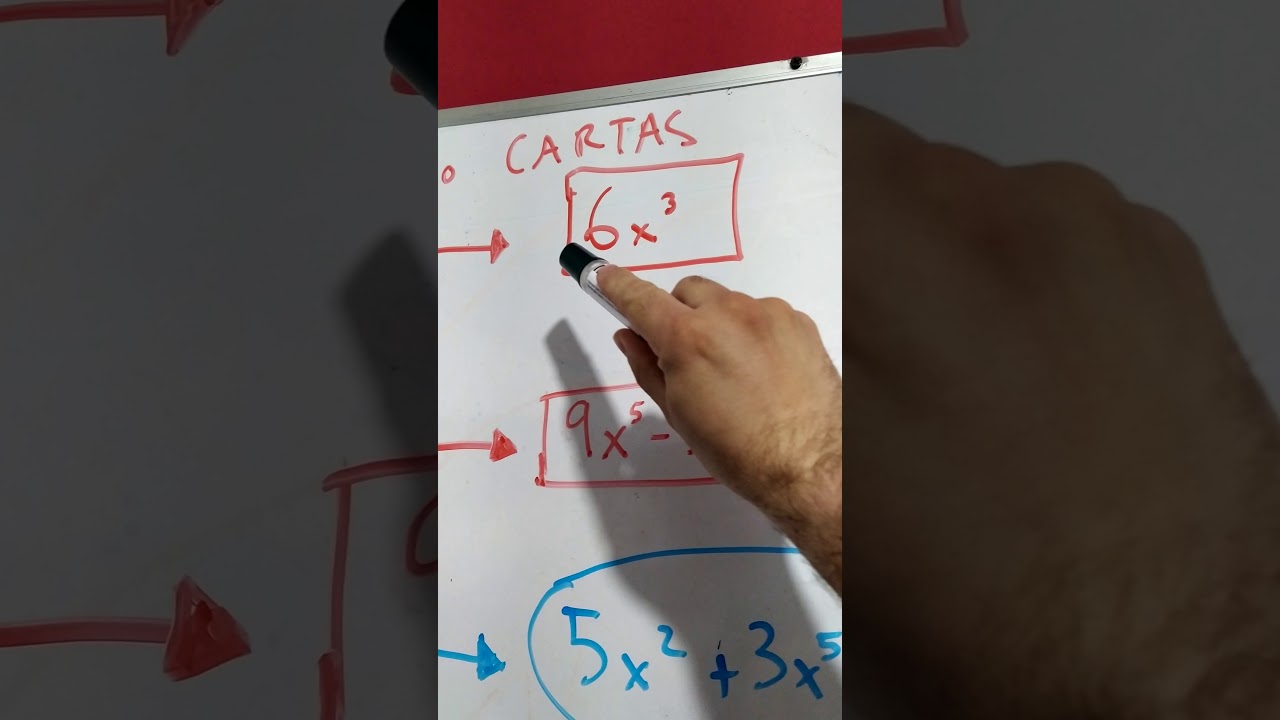 CARTAS
6x³
9x⁵-
5x²+3x⁵